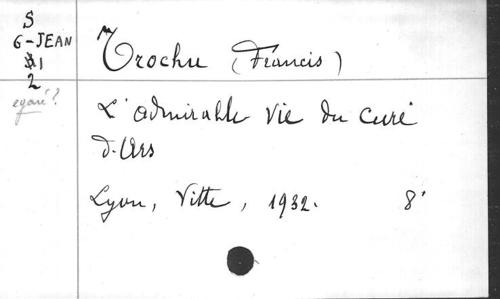 S
6-JEAN
1
2
egaré?
Trochu (Francis)
L'admirable vie du curé
d'Ars
Lyon, Vitte, 1932. 8°